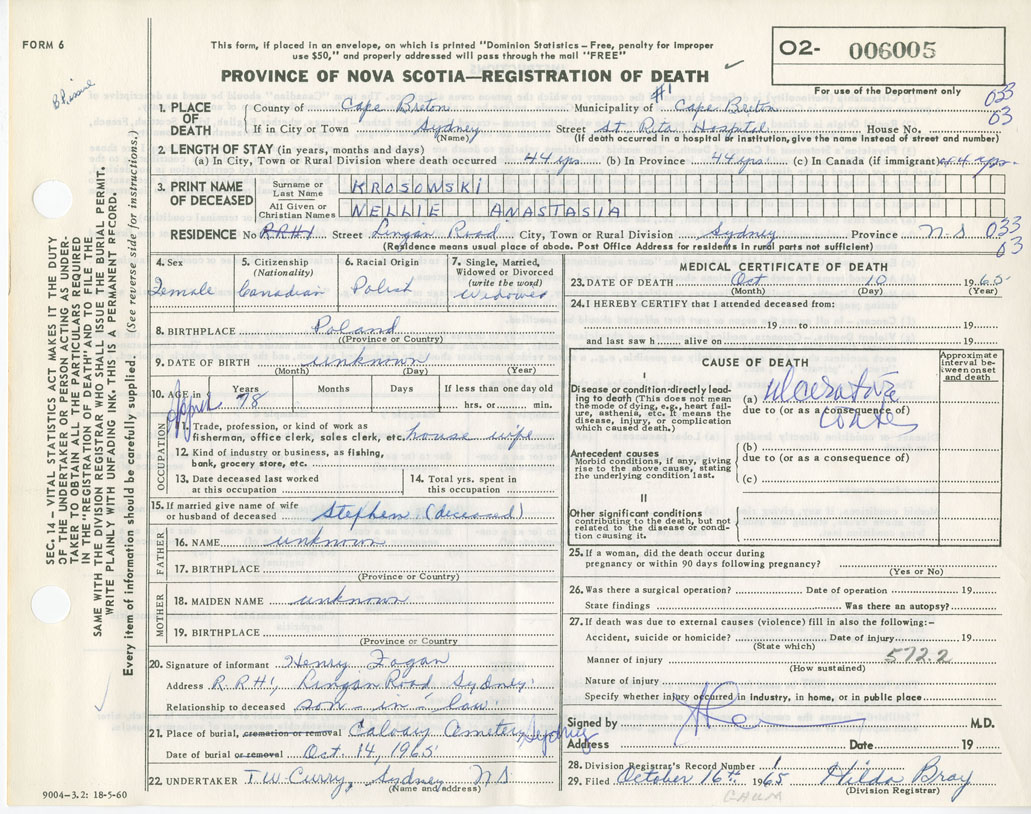 FORM 6
This form, if placed in an envelope, on which is printed "Dominion Statistics – Free, penalty for improper
use $50," and properly addressed will pass through the mail "FREE"
O2- 006005
PROVINCE OF NOVA SCOTIA—REGISTRATION OF DEATH
For use of the Department only
033
03
1. PLACE OF DEATH
County of Cape Breton Municipality of #1 Cape Breton
If in City or Town Sydney Street St Rita Hospital House No.
(Name) (If death occurred in a hospital or institution, give the name instead of street and number)
2. LENGTH OF STAY (in years, months and days)
(a) In City, Town or Rural Division where death occurred 44 yrs. (b) In Province 44 yrs. (c) In Canada (if immigrant) 44 yrs.
3. PRINT NAME OF DECEASED
Surname or Last Name KROSOWSKI
All Given or Christian Names NELLIE ANASTASIA
RESIDENCE No RR#1 Street Lingan Road City, Town or Rural Division Sydney Province N-S 033
03
(Residence means usual place of abode. Post Office Address for residents in rural parts not sufficient)
4. Sex Female
5. Citizenship (Nationality) Canadian
6. Racial Origin Polish
7. Single, Married, Widowed or Divorced (write the word) Widowed
8. BIRTHPLACE Poland
(Province or Country)
9. DATE OF BIRTH unknown
(Month) (Day) (Year)
10. AGE in Years 78 Months Days If less than one day old
hrs. or min.
OCCUPATION
11. Trade, profession, or kind of work as
fisherman, office clerk, sales clerk, etc. house wife
12. Kind of industry or business, as fishing,
bank, grocery store, etc.
13. Date deceased last worked at this occupation
14. Total yrs. spent in this occupation
15. If married give name of wife
or husband of deceased Stephen (deceased)
FATHER
16. NAME unknown
17. BIRTHPLACE
(Province or Country)
MOTHER
18. MAIDEN NAME unknown
19. BIRTHPLACE
(Province or Country)
20. Signature of informant Henry Zagan
Address R.R#1, Lingan Road Sydney
Relationship to deceased son-in-law
21. Place of burial, cremation or removal Calvary Cemetery Sydney
Date of burial or removal Oct. 14, 1965
22. UNDERTAKER T. W. Curry, Sydney NS
(Name and address)
9004-3.2: 18-5-60
MEDICAL CERTIFICATE OF DEATH
23. DATE OF DEATH Oct 10 1965
(Month) (Day) (Year)
24. I HEREBY CERTIFY that I attended deceased from:
19 to 19
and last saw h alive on 19
CAUSE OF DEATH
Approximate interval between onset and death
I
Disease or condition directly leading to death (This does not mean the mode of dying, e.g., heart failure, asthenia, etc. It means the disease, injury, or complication which caused death.)
(a) ulcerative
due to (or as a consequence of)
Antecedent causes
Morbid conditions, if any, giving rise to the above cause, stating the underlying condition last.
(b)
due to (or as a consequence of)
(c)
II
Other significant conditions
contributing to the death, but not related to the disease or condition causing it.
25. If a woman, did the death occur during
pregnancy or within 90 days following pregnancy?
(Yes or No)
26. Was there a surgical operation? Date of operation 19
State findings Was there an autopsy?
27. If death was due to external causes (violence) fill in also the following:–
Accident, suicide or homicide? Date of injury 19
(State which)
Manner of injury 572.2
(How sustained)
Nature of injury
Specify whether injury occurred in industry, in home, or in public place
Signed by M.D.
Address Date 19
28. Division Registrar's Record Number 1
29. Filed October 16th 1965 Hilda Bray
(Division Registrar)
SEC. 14 – VITAL STATISTICS ACT MAKES IT THE DUTY
OF THE UNDERTAKER OR PERSON ACTING AS UNDER-
TAKER TO OBTAIN ALL THE PARTICULARS REQUIRED
IN THE "REGISTRATION OF DEATH" AND TO FILE THE
SAME WITH THE DIVISION REGISTRAR WHO SHALL ISSUE THE BURIAL PERMIT.
WRITE PLAINLY WITH UNFADING INK. THIS IS A PERMANENT RECORD.
Every item of information should be carefully supplied. (See reverse side for instructions.)